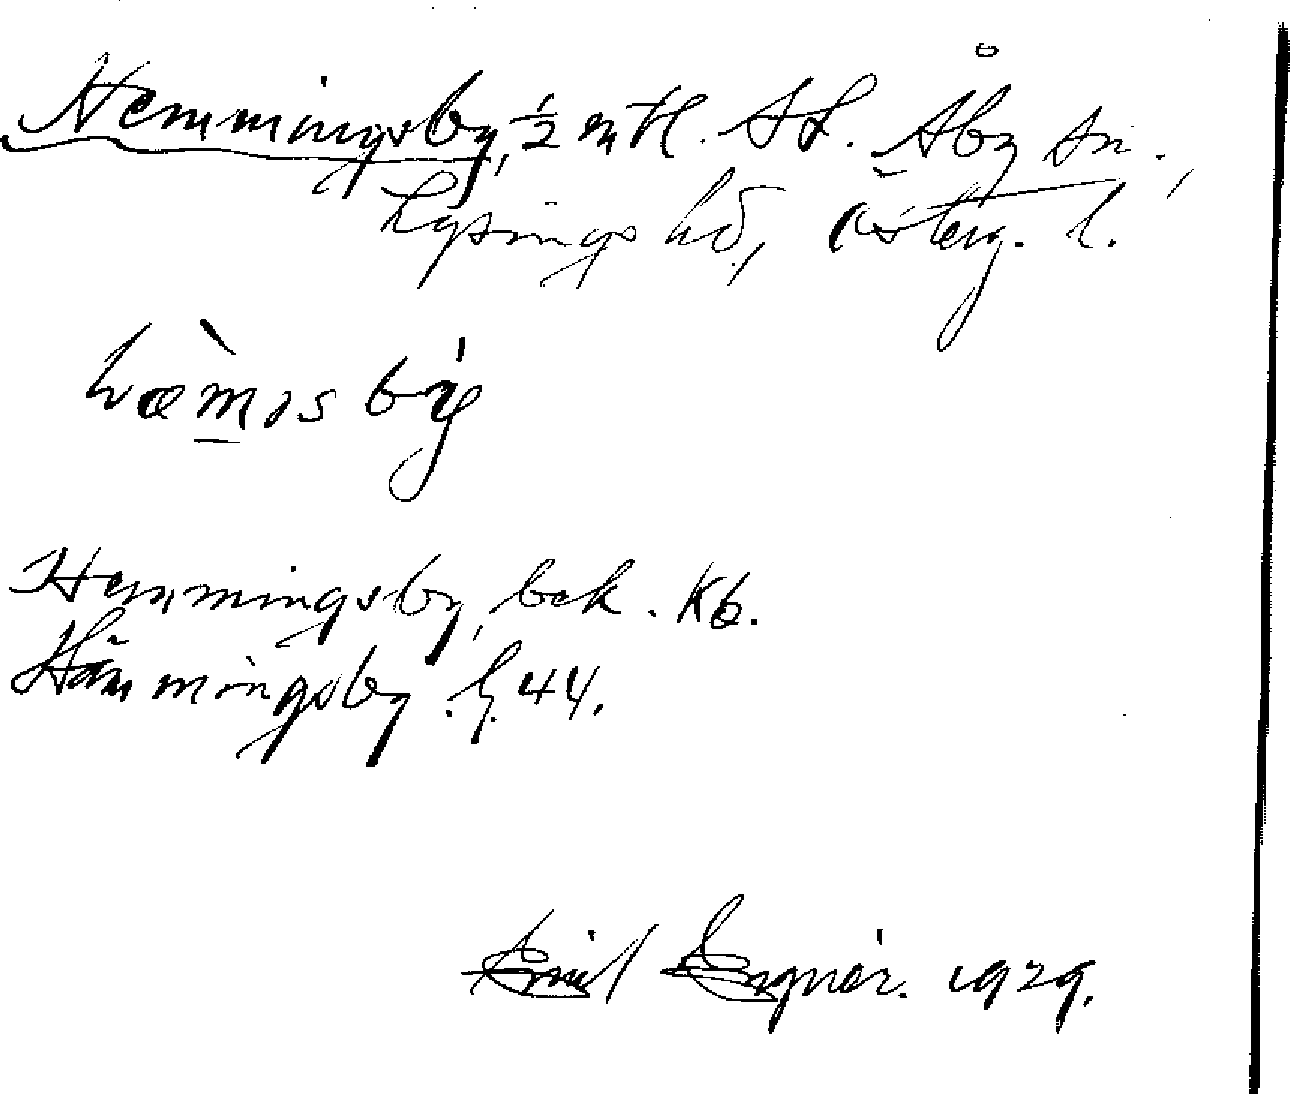 Hemmingsby, ½ mtl. St. Åby sn.,
Lysings hd, Österg. l.
hæ̀mɪsby̍
Hemmingsby, bek. Kb.
Hämmingsby. 44.
Emil Egnér. 1929.